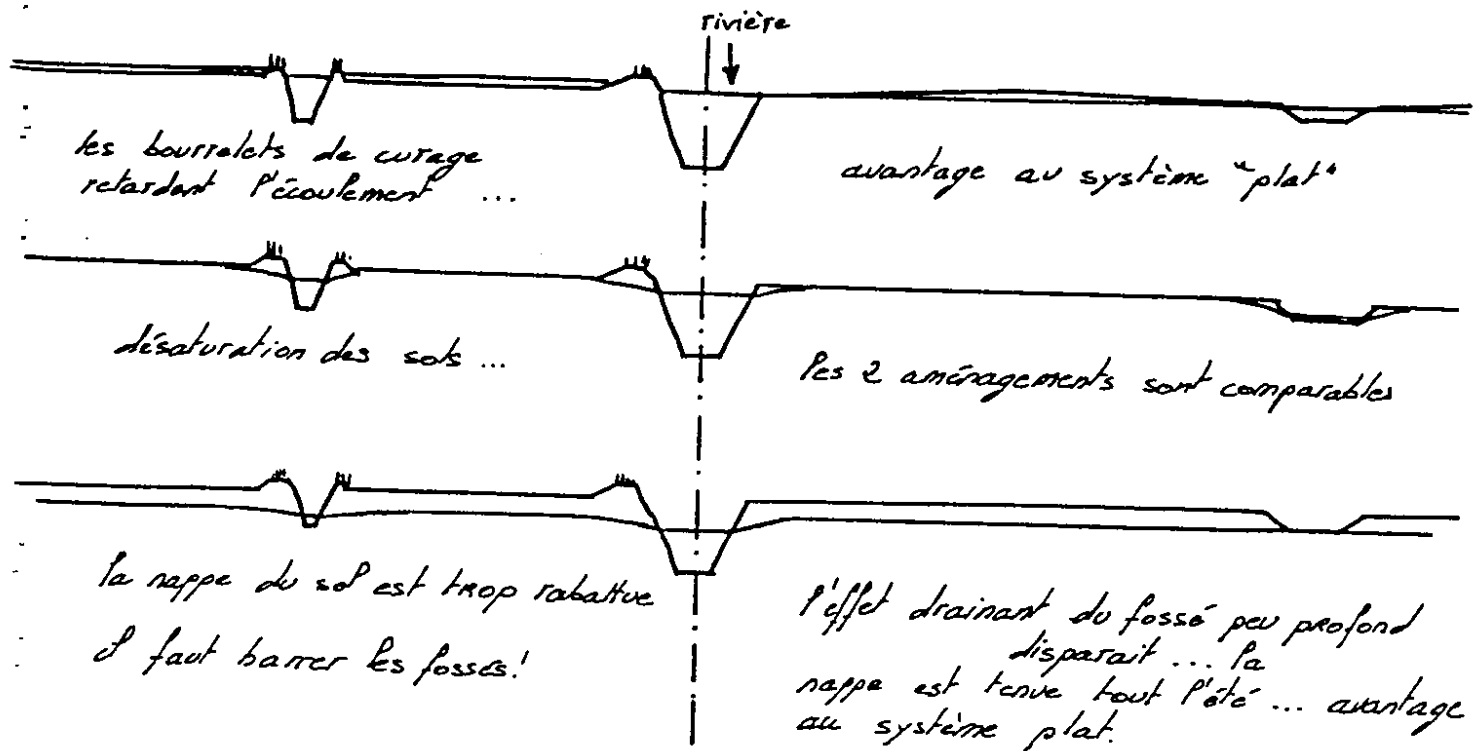 rivière
les bourrelets de curage
retardent l'écoulement ...
avantage au système "plat"
désaturation des sols ...
les 2 aménagements sont comparables
la nappe du sol est trop rabattue
il faut barrer les fossés!
l'effet drainant du fossé peu profond
disparait ... la
nappe est tenue tout l'été ... avantage
au système plat.